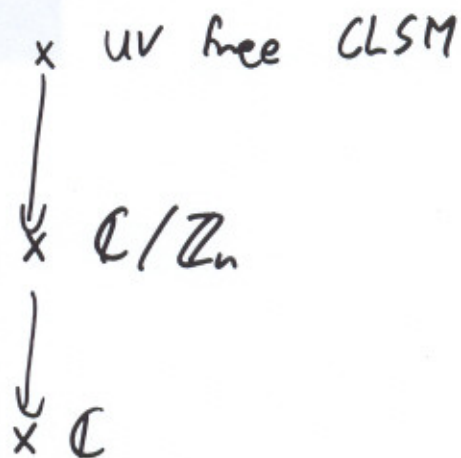 x UV free CLSM
x ℂ/ℤn
x ℂ